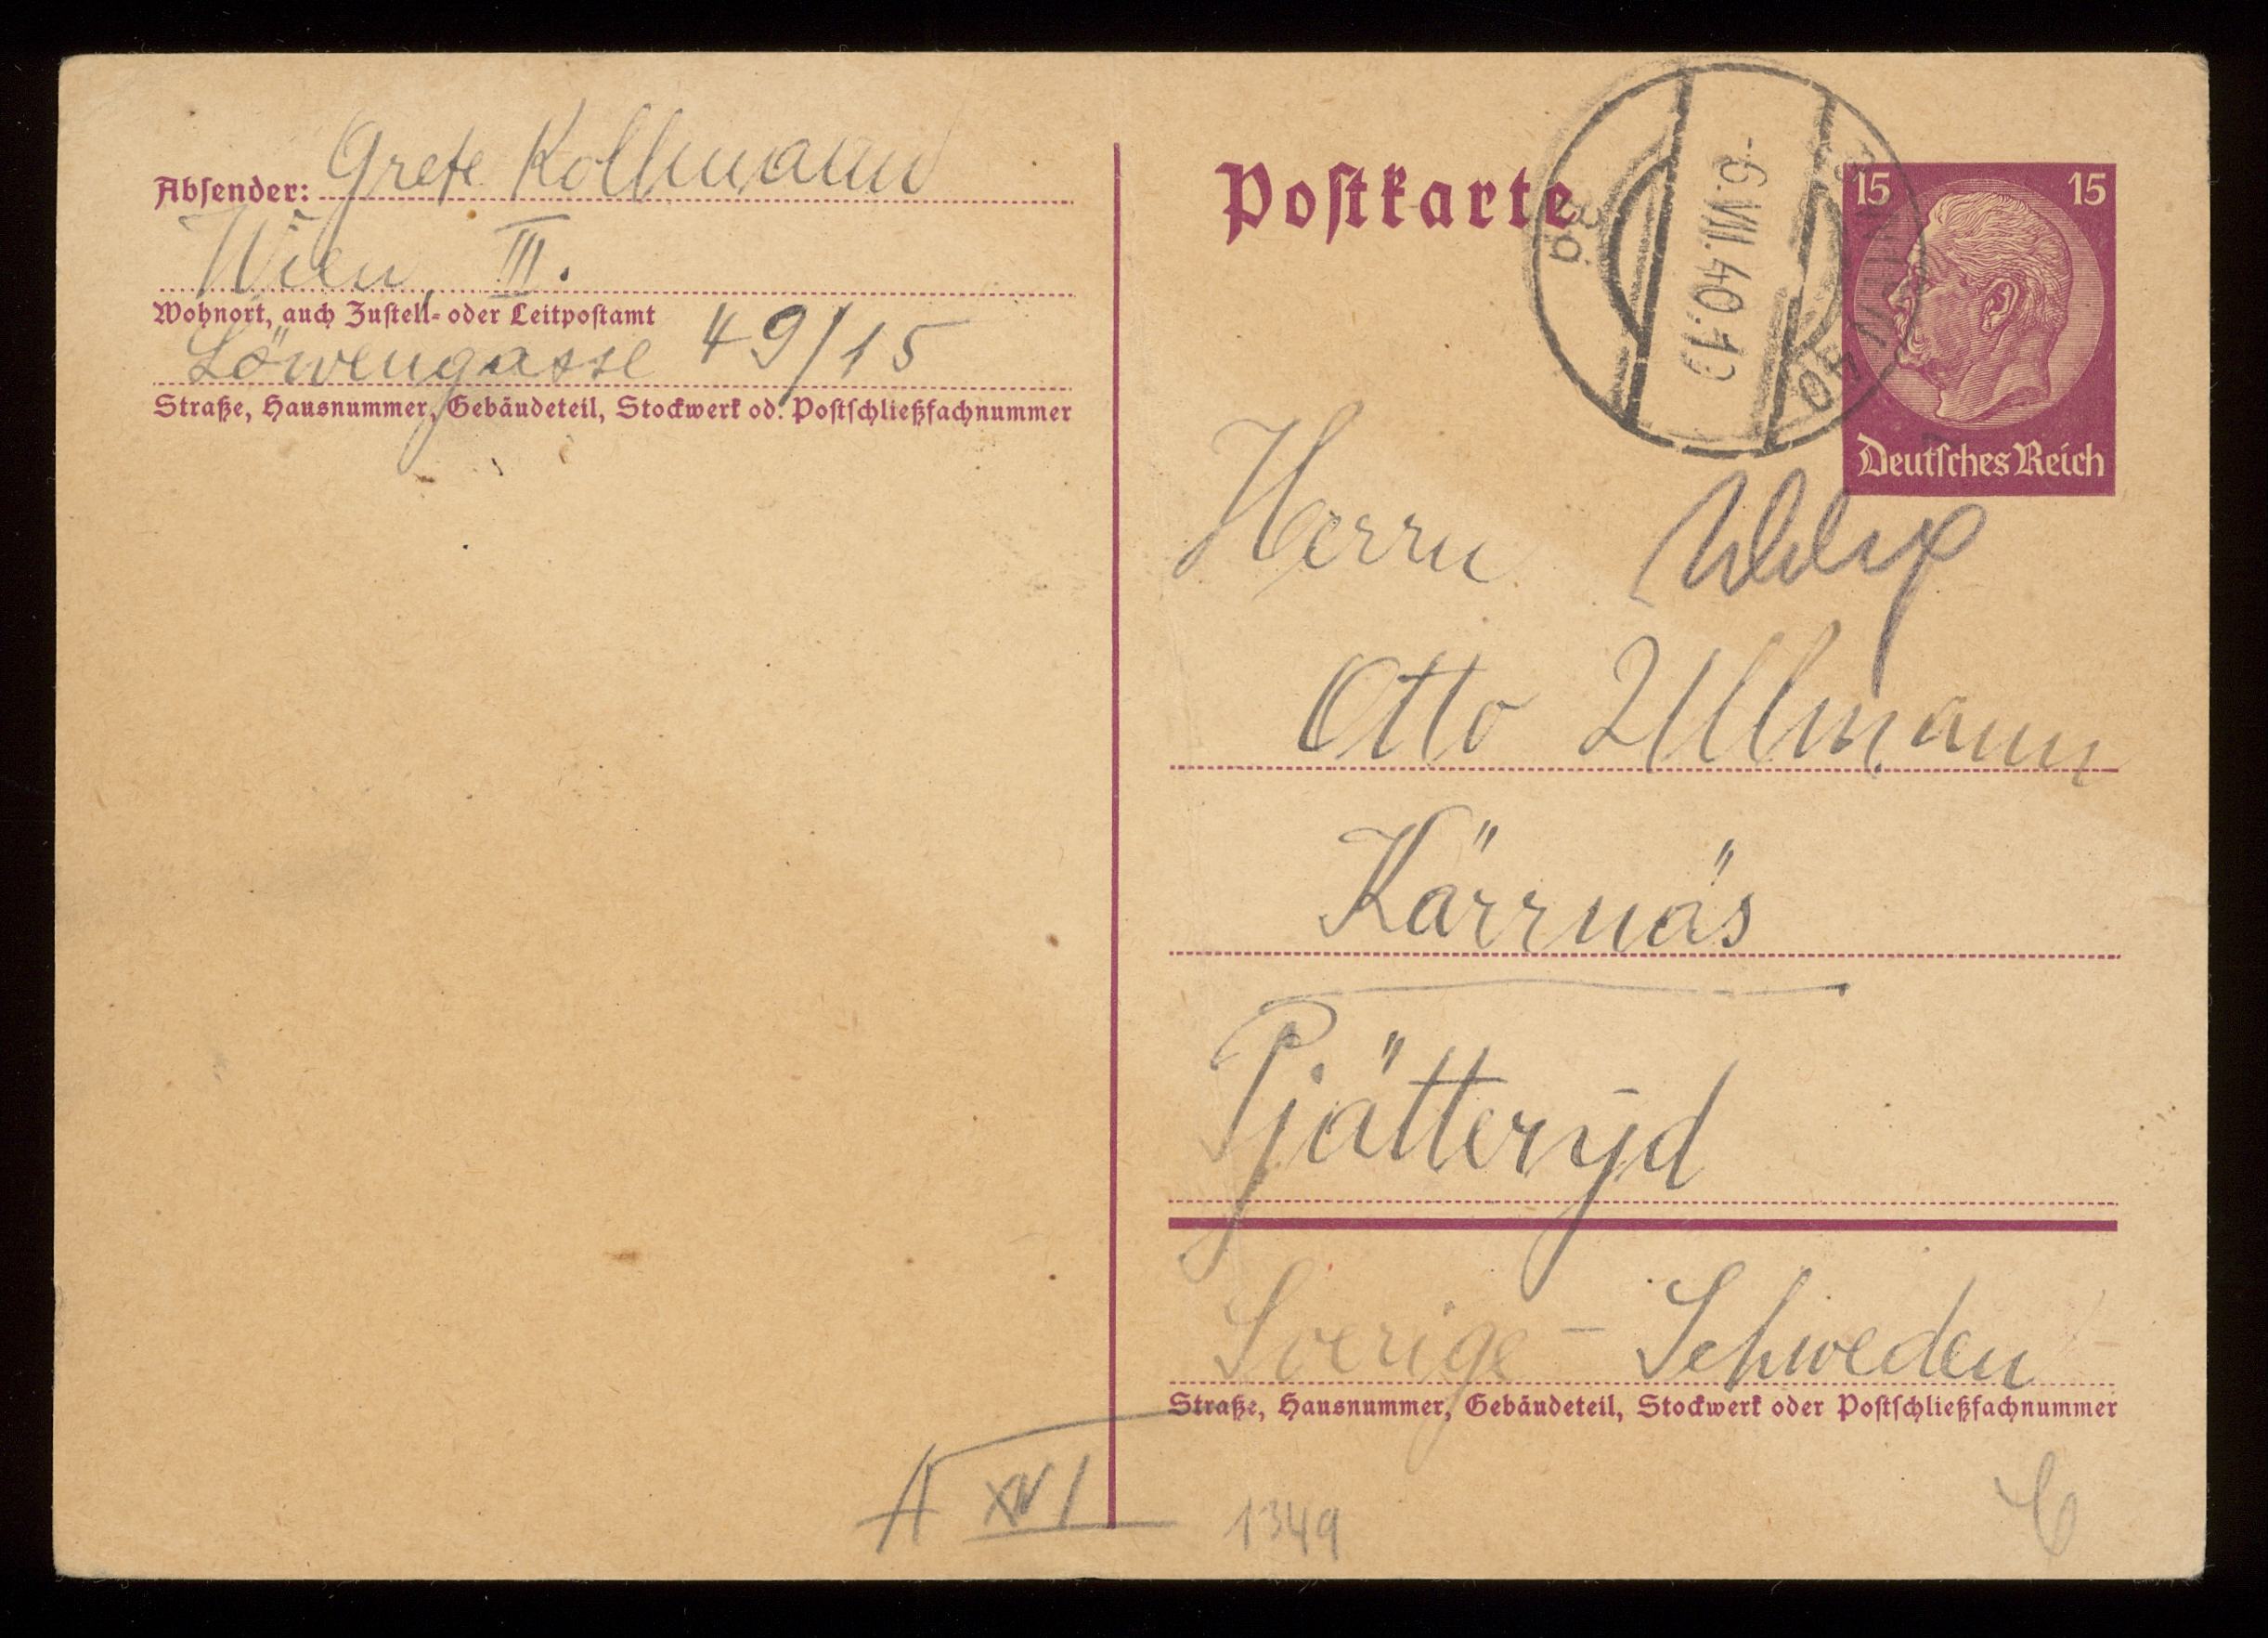 Absender: Grete Kollmann
Wien, III.
Wohnort, auch Zustell- oder Leitpostamt
Löwengasse 49/15
Straße, Hausnummer, Gebäudeteil, Stockwerk od. Postschließfachnummer
Postkarte
-6.VII.40.19
15 15
Deutsches Reich
Herrn
Otto Ullmann
Kärrnäs
Pjätteryd
Sverige - Schweden
Straße, Hausnummer, Gebäudeteil, Stockwerk oder Postschließfachnummer
A XVI
1349